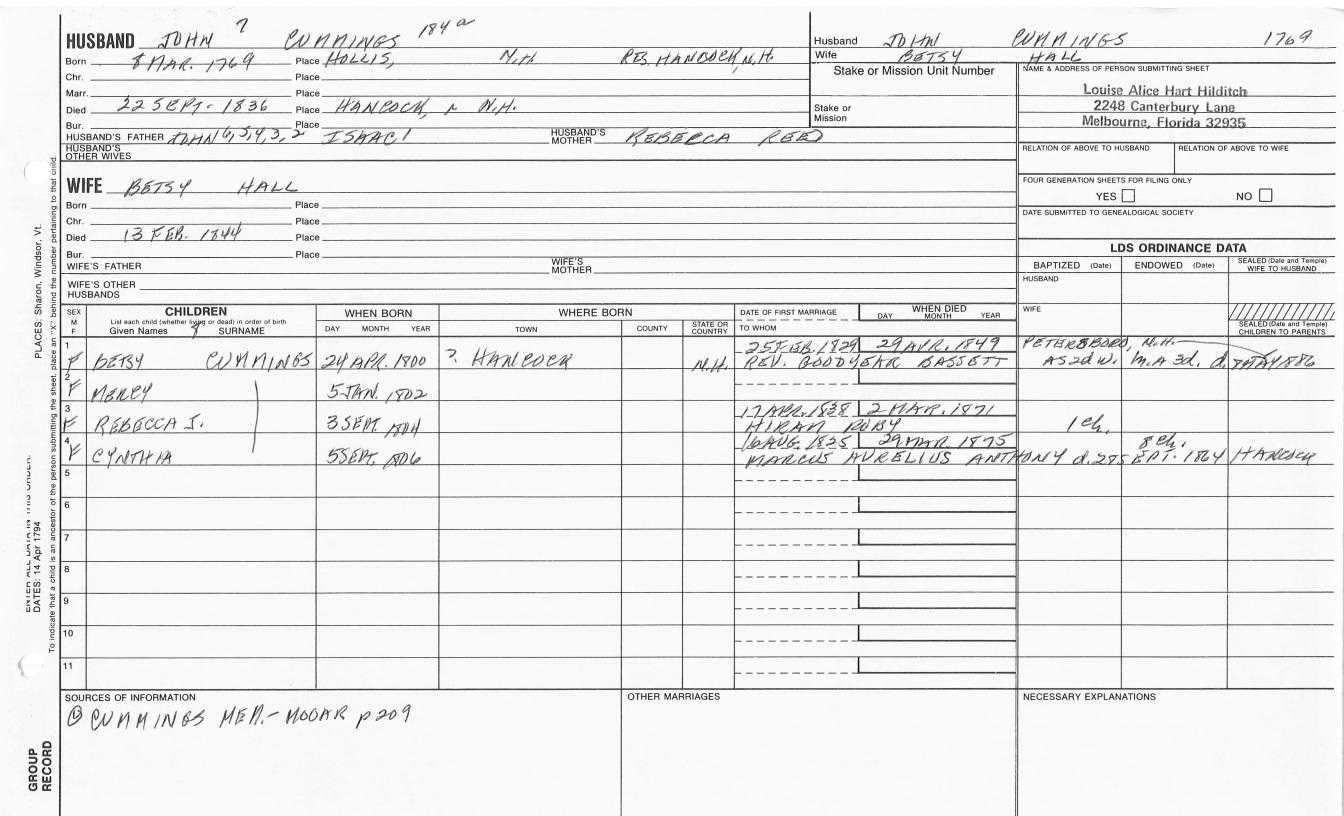 HUSBAND JOHN 7 CUMMINGS 184a
Born 8 MAR. 1769 Place HOLLIS, N.H. RES. HANCOCK, N.H.
Chr. Place
Marr. Place
Died 22 SEPT. 1836 Place HANCOCK, N.H.
Bur. Place
HUSBAND'S FATHER JOHN 6, 5, 4, 3, 2 ISAAC 1 HUSBAND'S MOTHER REBECCA REED
HUSBAND'S OTHER WIVES
Husband JOHN CUMMINGS 1769
Wife BETSY HALL
Stake or Mission Unit Number
Stake or Mission
NAME & ADDRESS OF PERSON SUBMITTING SHEET
Louise Alice Hart Hilditch
2248 Canterbury Lane
Melbourne, Florida 32935
RELATION OF ABOVE TO HUSBAND RELATION OF ABOVE TO WIFE
FOUR GENERATION SHEETS FOR FILING ONLY
YES NO
DATE SUBMITTED TO GENEALOGICAL SOCIETY
WIFE BETSY HALL
Born Place
Chr. Place
Died 13 FEB. 1844 Place
Bur. Place
WIFE'S FATHER WIFE'S MOTHER
WIFE'S OTHER HUSBANDS
LDS ORDINANCE DATA
BAPTIZED (Date) ENDOWED (Date) SEALED (Date and Temple) WIFE TO HUSBAND
HUSBAND
WIFE
SEALED (Date and Temple) CHILDREN TO PARENTS
SEX M F
CHILDREN
List each child (whether living or dead) in order of birth
Given Names SURNAME
WHEN BORN
DAY MONTH YEAR
WHERE BORN
TOWN COUNTY STATE OR COUNTRY
DATE OF FIRST MARRIAGE
TO WHOM
WHEN DIED
DAY MONTH YEAR
1 25 FEB. 1829 29 APR. 1849 PETERSBORO, N.H.
F BETSY CUMMINGS 24 APR. 1800 ? HANCOCK N.H. REV. GOODYEAR BASSETT AS 2d W. m. A 3d. d. MAY 1886
2
F MERCY 5 JAN. 1802
3 17 APR. 1838 2 MAR. 1871
F REBECCA J. 3 SEPT. 1804 HIRAM RUBY 1 ch.
4 16 AUG. 1825 29 MAR. 1875 8 ch.
F CYNTHIA 5 SEPT. 1806 MARCUS AURELIUS ANTHONY d. 28 SEPT. 1864 HANCOCK
5
6
7
8
9
10
11
SOURCES OF INFORMATION
CUMMINGS MEM. - MOOAR p 209
OTHER MARRIAGES
NECESSARY EXPLANATIONS
PLACES: Sharon, Windsor, Vt.
DATES: 14 Apr 1794
ENTER ALL DATA IN THIS ORDER:
To indicate that a child is an ancestor of the person submitting the sheet, place an "X" behind the number pertaining to that child.
GROUP RECORD